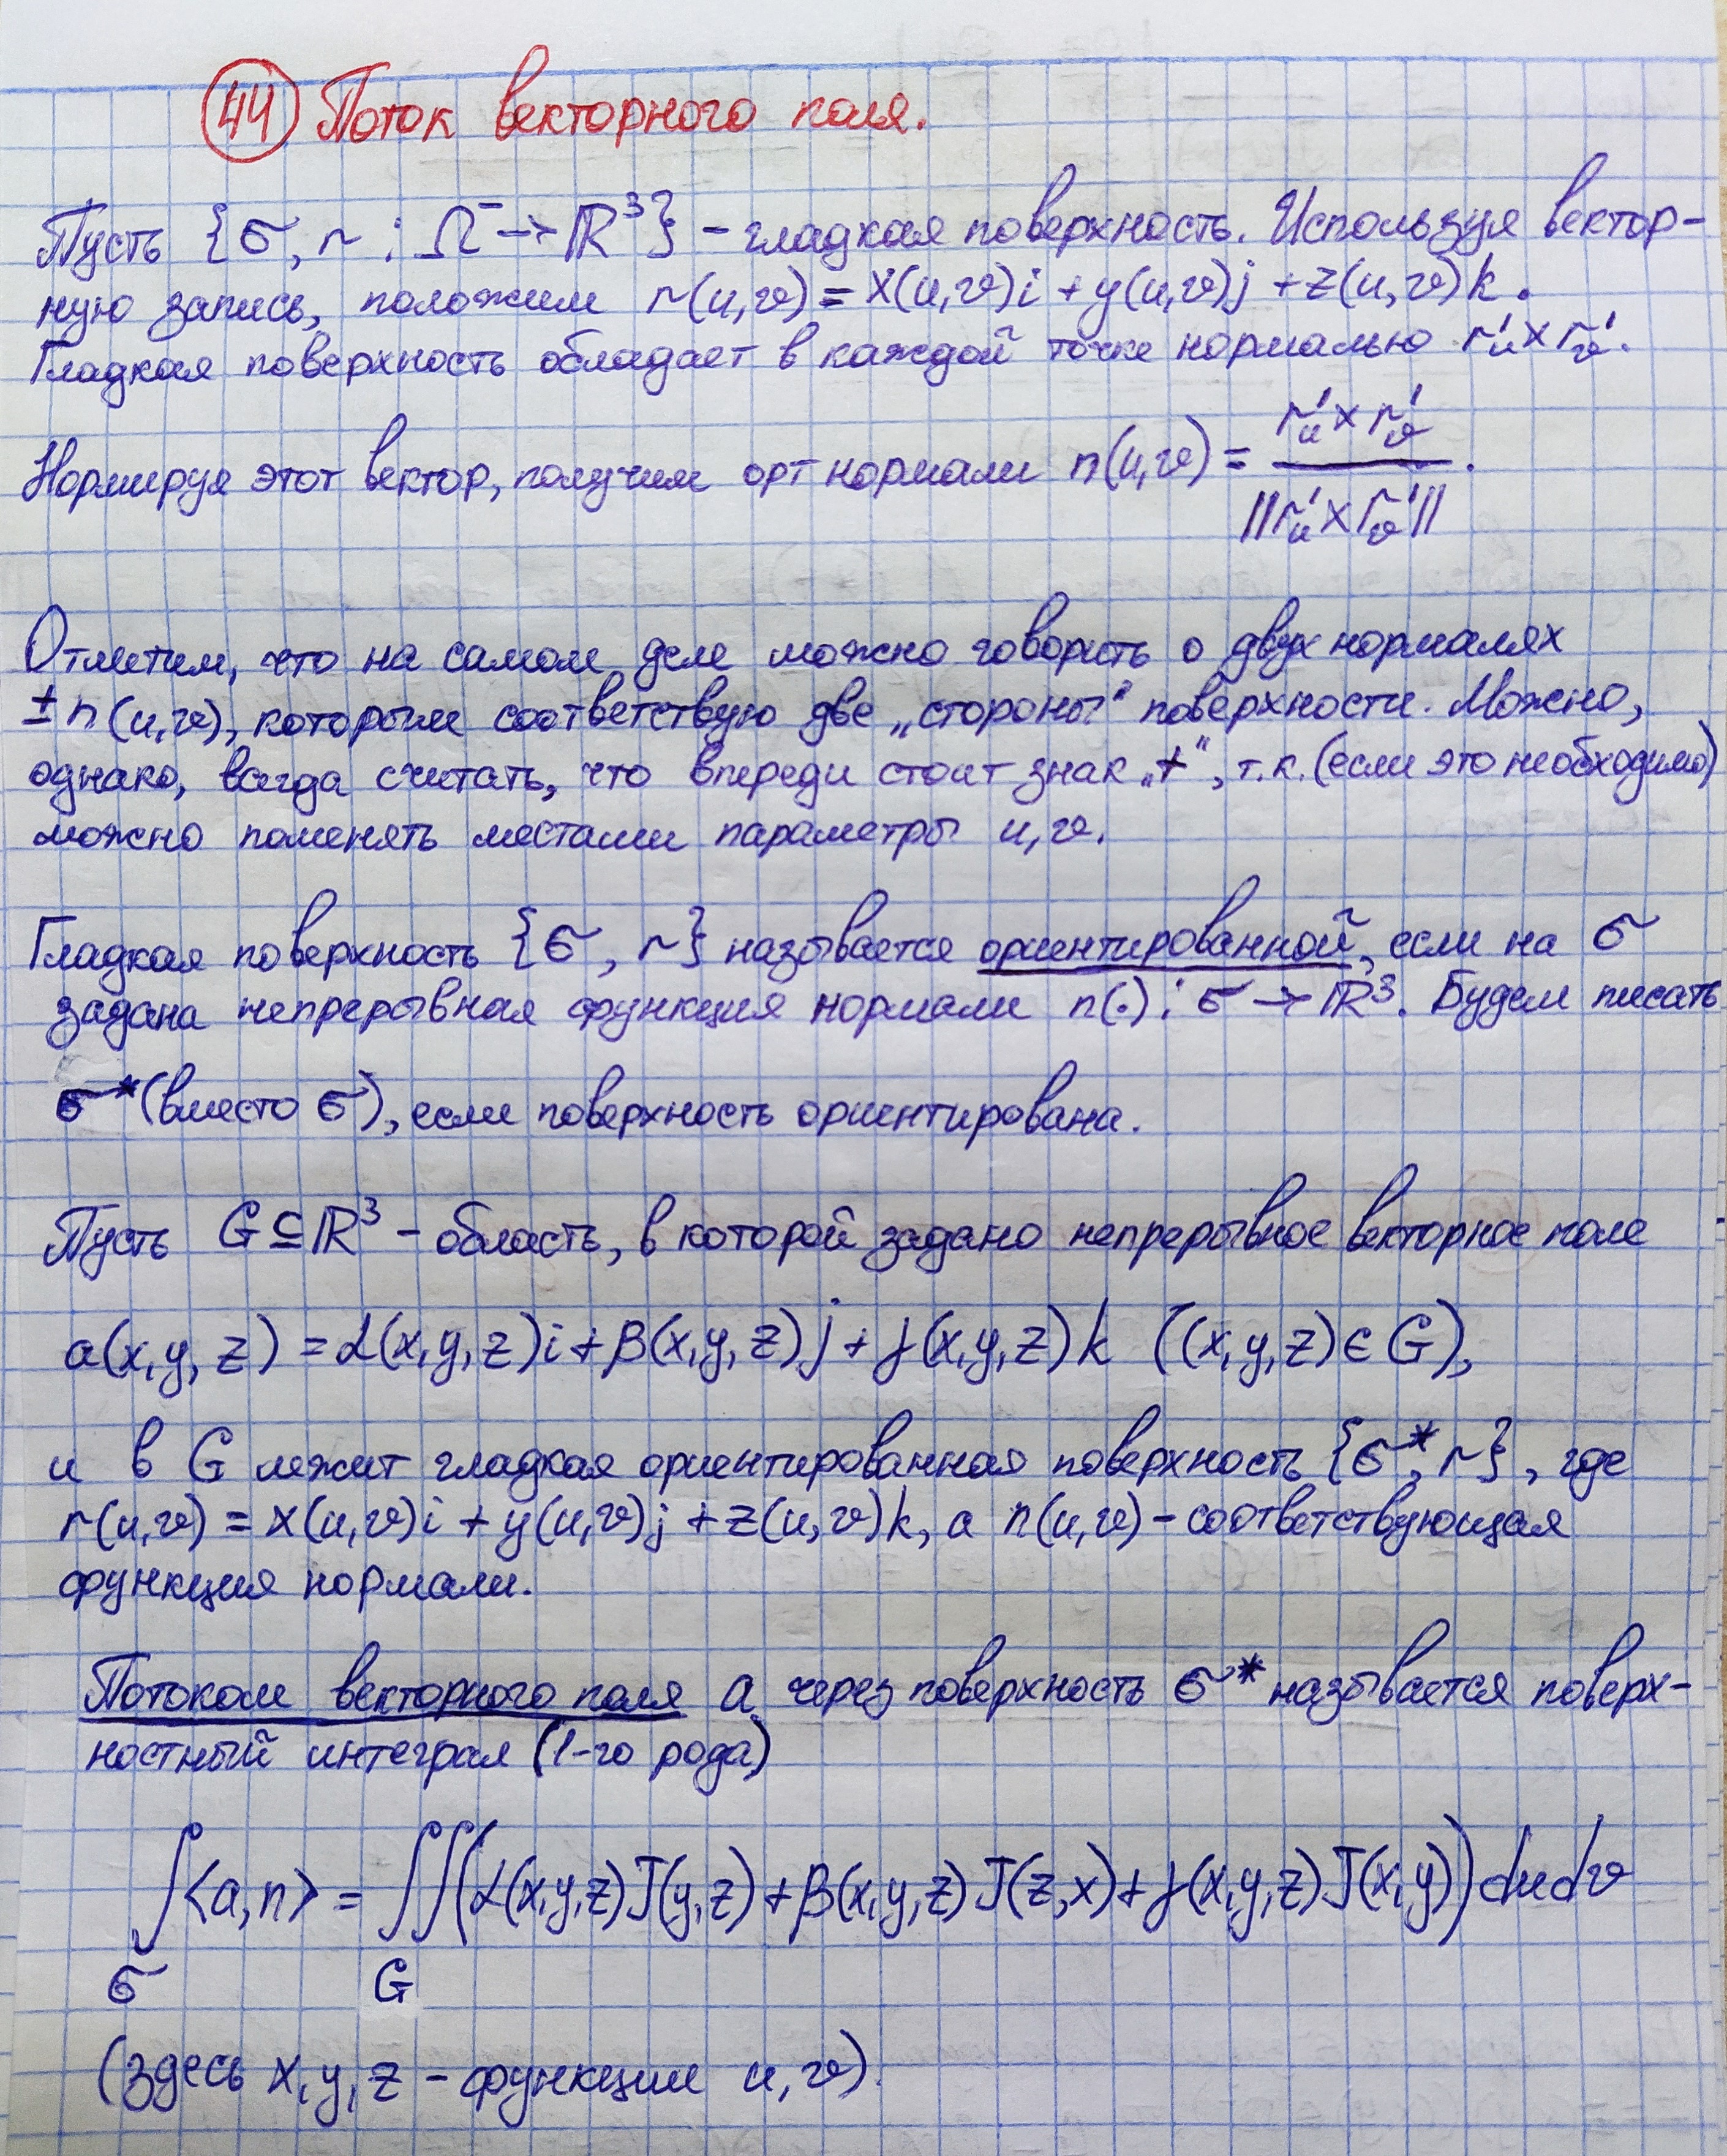 44 Поток векторного поля.
Пусть {σ, r : Ω⁻ → ℝ³} – гладкая поверхность. Используя вектор-
ную запись, положим r(u,v) = x(u,v)i + y(u,v)j + z(u,v)k.
Гладкая поверхность обладает в каждой точке нормалью r'ᵤ × r'ᵥ.
Нормируя этот вектор, получим орт нормали n(u,v) = (r'ᵤ × r'ᵥ) / ||r'ᵤ × r'ᵥ||.
Отметим, что на самом деле можно говорить о двух нормалях
± n(u,v), которым соответствую две „стороны“ поверхности. Можно,
однако, всегда считать, что впереди стоит знак „+“, т.к. (если это необходимо)
можно поменять местами параметры u,v.
Гладкая поверхность {σ, r} называется ориентированной, если на σ
задана непрерывная функция нормали n(·) : σ → ℝ³. Будем писать
σ* (вместо σ), если поверхность ориентирована.
Пусть G ⊆ ℝ³ – область, в которой задано непрерывное векторное поле
a(x,y,z) = α(x,y,z)i + β(x,y,z)j + γ(x,y,z)k ((x,y,z) ∈ G),
и в G лежит гладкая ориентированная поверхность {σ*, r}, где
r(u,v) = x(u,v)i + y(u,v)j + z(u,v)k, а n(u,v) – соответствующая
функция нормали.
Потоком векторного поля a через поверхность σ* называется поверх-
ностный интеграл (1-го рода)
∫⟨a,n⟩ = ∬(α(x,y,z)J(y,z) + β(x,y,z)J(z,x) + γ(x,y,z)J(x,y))dudv
σ G
(здесь x,y,z – функции u,v).